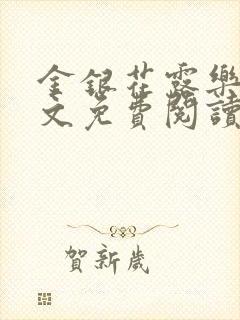 金銀花露樂
文免費閱讀
賀新歲